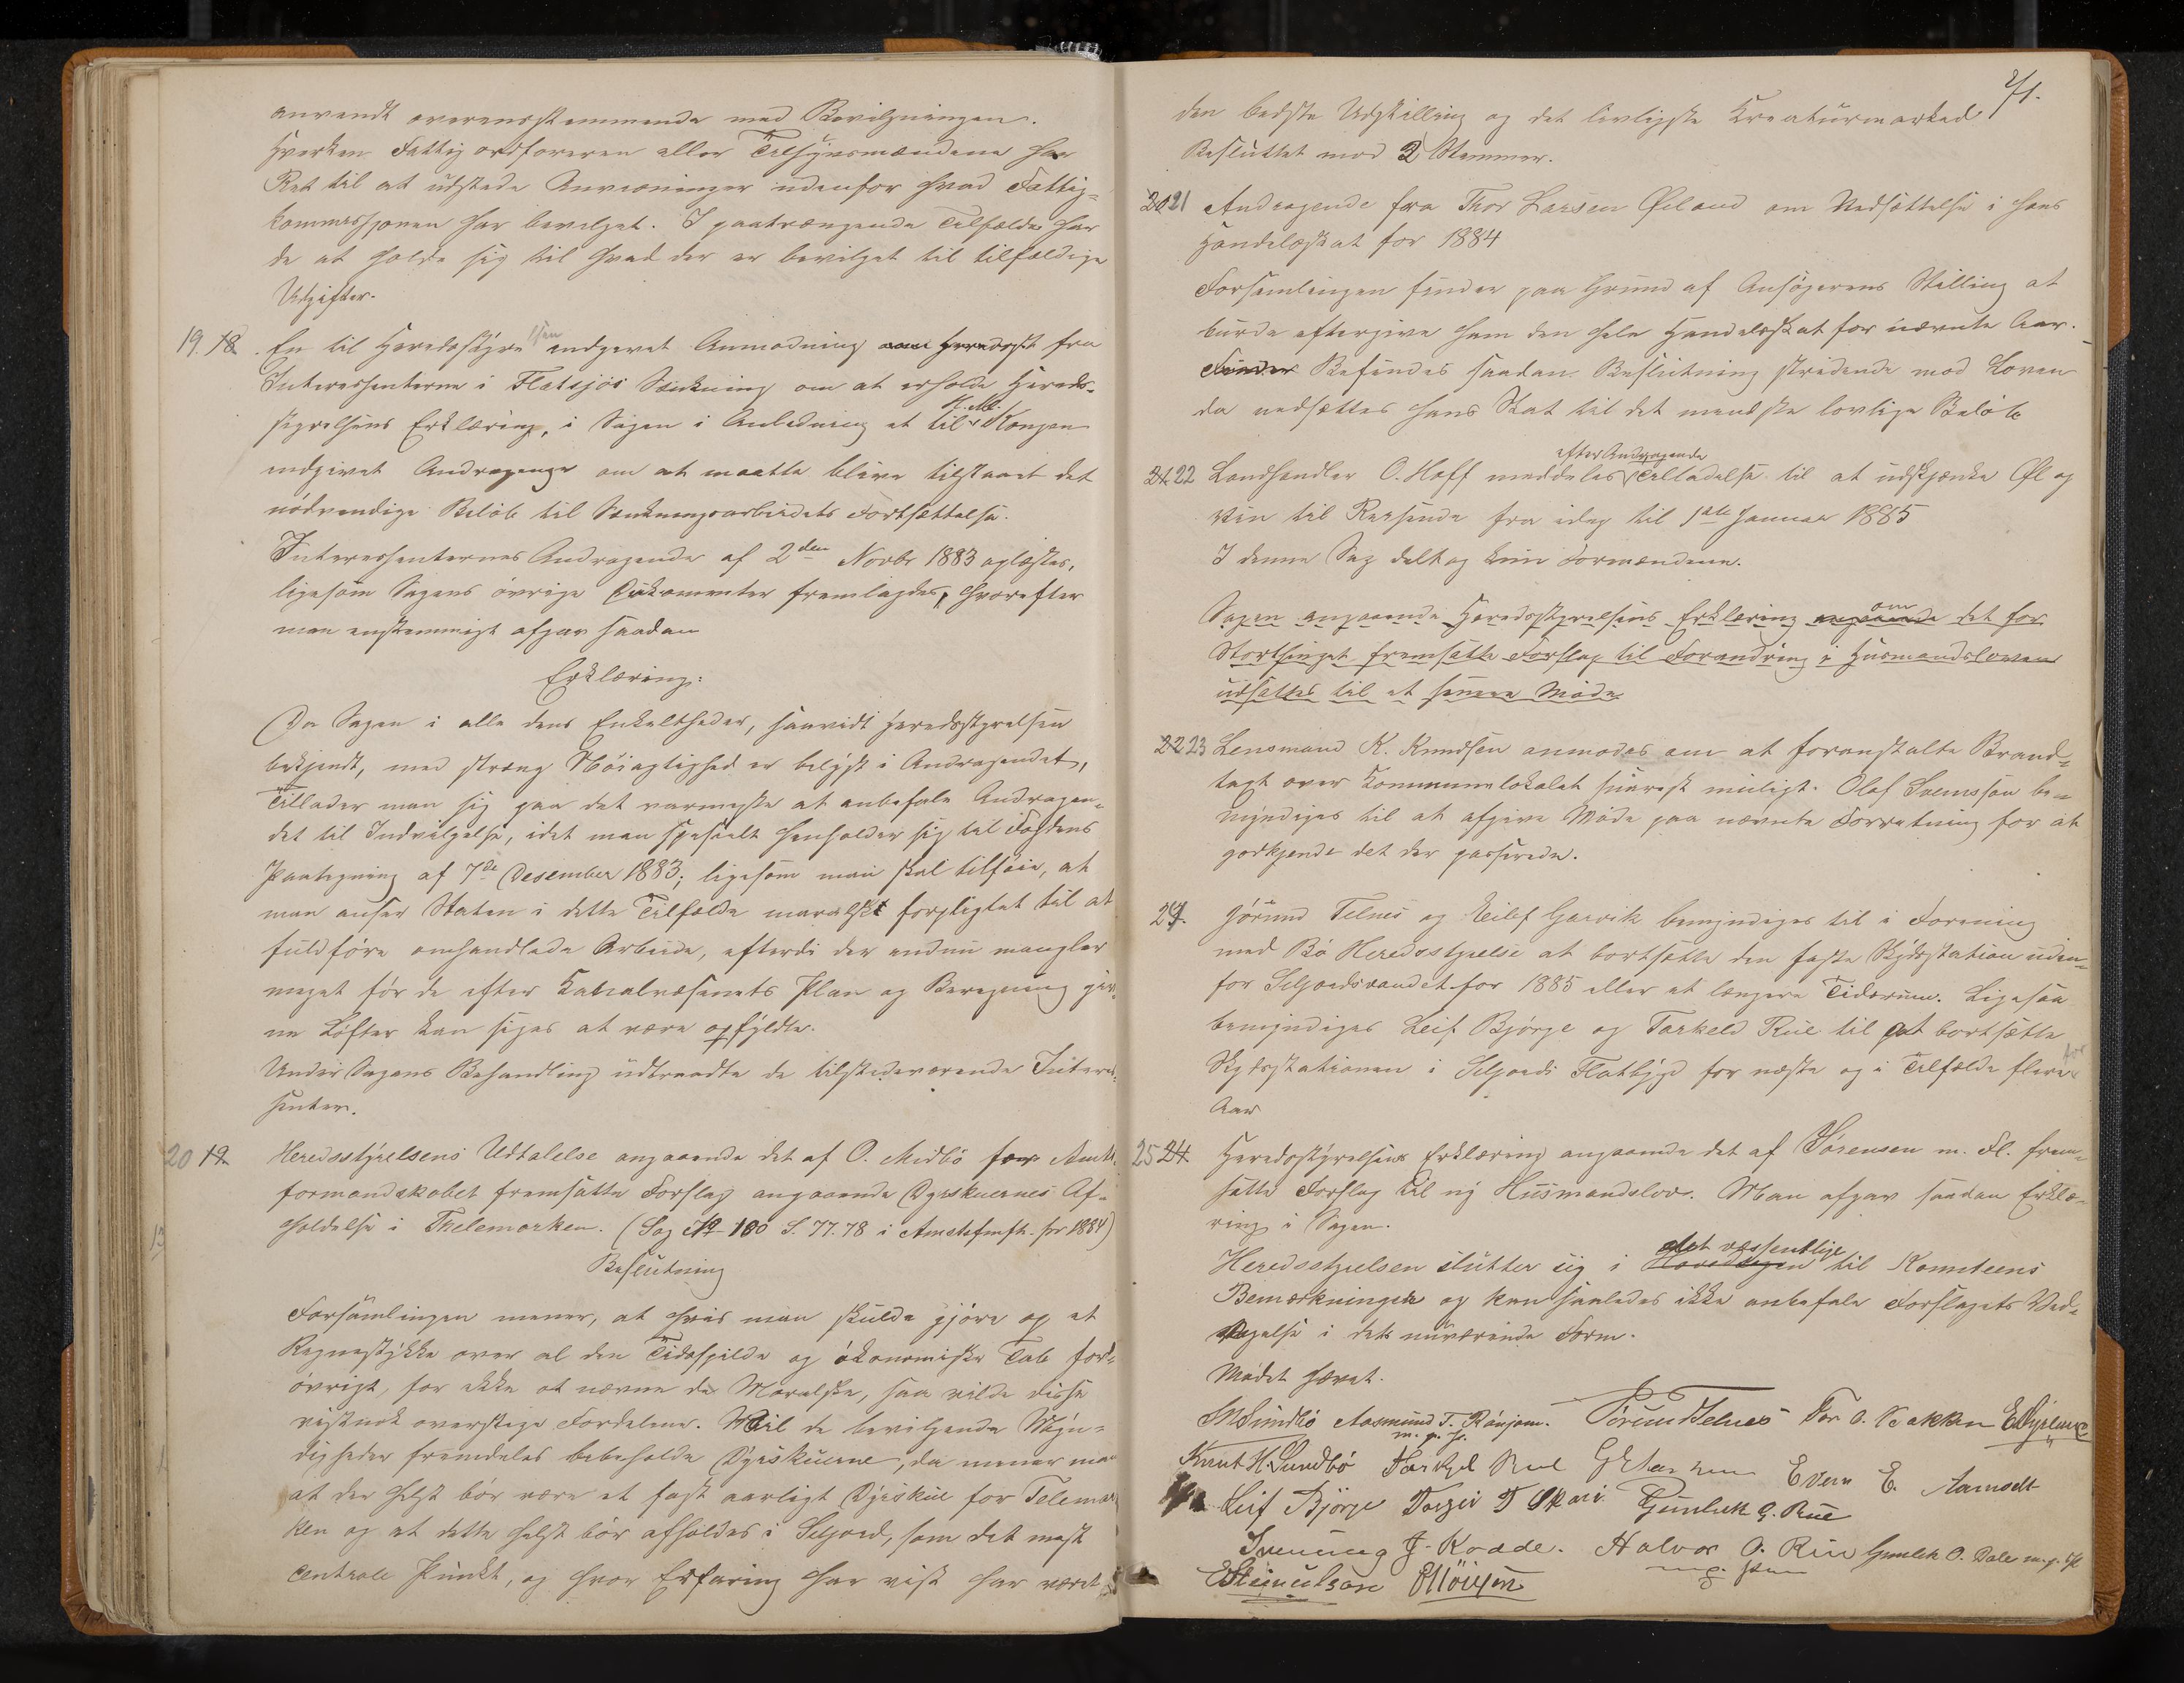 anvendt overensstemmende med Bevilgningen.
Hverken Fattigordføreren eller Tilsynsmændene har
Ret til at udstede Anvisninger udenfor hvad Fattig=
kommissjonen har bevilget. I paatrængende Tilfælde har
de at holde sig til hvad der er bevilget til tilfældige
Udgifter.
19. 18. En til Heredsstyrelsen indgivet Anmodning fra
Interessenterne i Flatsjøs Sænkning om at erholde Hereds=
styrelsens Erklæring, i Sagen i Anledning et til H. M. Kongen
indgivet Andragende om at maatte blive tilstaaet det
nødvendige Beløb til Sænkningsarbeidets Fortsættelse.
Interessenternes Andragende af 2den Novbr 1883 oplæstes,
ligesom Sagens øvrige Dokumenter fremlagdes, hvorefter
man enstemmigt afgav saadan
Erklæring:
Da Sagen i alle dens Enkeltheder, saavidt Heredsstyrelsen
bekjendt, med streng Nøiagtighed er belyst i Andragendet,
tillader man sig paa det varmeste at anbefale Andragen=
det til Indvilgelse, idet man specielt henholder sig til Fogdens
Paategning af 7de Desember 1883; ligesom man skal tilføie, at
man anser Staten i dette Tilfælde moralskt forpligtet til at
fuldføre omhandlede Arbeide, efterdi der endnu mangler
meget før de efter Kanalvæsenets Plan og Beregning giv=
ne Løfter kan siges at være opfyldte.
Under Sagens Behandling udtraadte de tilstedeværende Interes=
senter.
20 19. Heredsstyrelsens Udtalelse angaaende det af O. Midbø for Amts=
formandskabet fremsatte Forslag angaaende Dyrskuernes Af=
holdelse i Thelemarken. (Sag No 100 S. 77.78 i Amtsfmsk. for 1884)
Beslutning
Forsamlingen mener, at hvis man skulde gjøre op et
Regnestykke over al den Tidsspilde og økonomiske Tab for=
øvrigt, for ikke at nævne det Moralske, saa vilde disse
vistnok overstige Fordelene. Vil de bevilgende Myn=
digheder fremdeles bibeholde Dyrskuerne, da mener man
at der helst bør være et fast aarligt Dyrskue for Telemar=
ken og at dette helst bør afholdes i Seljord, som det mest
centrale Punkt, og hvor Erfaring har vist har været
271.
den bedste Udstilling og det livligste Kreaturmarked
Besluttet mod 2 Stemmer.
20 21 Andragende fra Thor Larsen Øiland om Nedsættelse i hans
Handelsskat for 1884
Forsamlingen finder paa Grund af Ansøgerens Stilling at
burde eftergive ham den hele Handelsskat for nævnte Aar.
Finder Befindes saadan Beslutning stridende mod Loven
da nedsættes hans Skat til det mindste lovlige Beløb
21 22 Landhandler O. Hoff meddeles efter Andragende Tilladelse til at udskjænke Øl og
Vin til Reisende fra idag til 1ste Januar 1885
I denne Sag deltog kun Formændene.
Sagen angaaende Heredsstyrelsens Erklæring angaaende om det for
Storthinget fremsatte Forslag til Forandring i Husmandsloven
udsættes til et senere Møde
22 23 Lensmand K. Knudsen anmodes om at foranstalte Brand=
tagt over Kommunelokalet snarest muligt. Olaf Svenssøn be=
myndiges til at afgive Møde paa nævnte Forretning for at
godkjende det der passerede.
24. Jørund Telnes og Eilef Garvik bemyndiges til i Forening
med Bø Heredsstyrelse at bortsætte den faste Skydsstation uden=
for Seljordsvandet for 1885 eller et længere Tidsrum. Ligesaa
bemyndiges Leif Bjørge og Tarkeld Rue til at bortsætte
Skydsstationen i Seljords Flatbygd for næste og i Tilfælde for flere
Aar
25 24. Heredsstyrelsens Erklæring angaaende det af Sørensen m. Fl. frem=
satte Forslag til ny Husmandslov. Man afgav saadan Erklæ=
ring i Sagen.
Heredsstyrelsen slutter sig i Hovedsagen det væsentlige til Komiteens
Bemærkninger og kan saaledes ikke anbefale Forslagets Ved=
tagelse i dets nuværende Form.
Mødet hævet.
Aasmund T. Rønjom. Jørund Telnes Tor O. Bakken
m. p. P.
Knut H. Sundbø Tarkjel Rue Even E. Aamodt
Leif Bjørge Torgei T Skori Gunleik G. Rue
Svenung J. Kodde. Halvor O. Rue Gunleik O. Dale m. p. P.
m. p. Pen